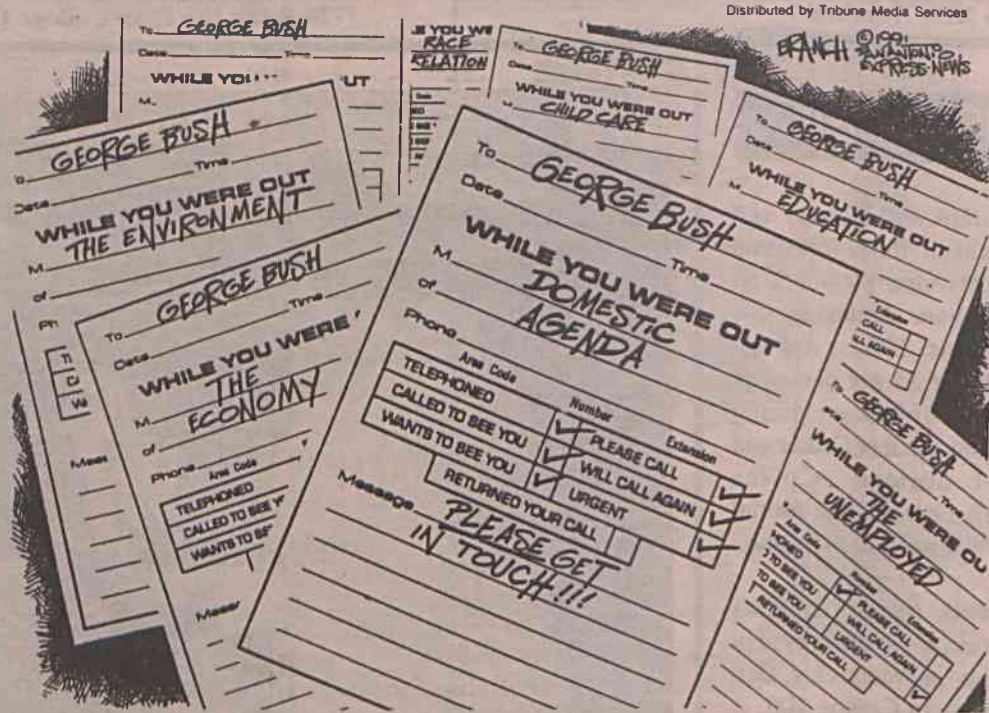 Distributed by Tribune Media Services
BRANCH ©1991
SAN ANTONIO
EXPRESS-NEWS
To GEORGE BUSH
Date Time
WHILE YOU UT
M.
E YOU WE
RACE
RELATION
To GEORGE BUSH
Date Time
WHILE YOU WERE OUT
M. CHILD CARE
To GEORGE BUSH
Date Time
WHILE YOU WERE OUT
M. EDUCATION
Extension
CALL
ILL AGAIN
GEORGE BUSH
Date Time
WHILE YOU WERE OUT
M. THE ENVIRONMENT
of
Ph
Mess
To GEORGE BUSH
Date Time
WHILE YOU WERE
M. THE
ECONOMY
of
Phone
Area Code
TELEPHONED
CALLED TO SEE Y
WANTS TO SE
Messa
To GEORGE BUSH
Date Time
WHILE YOU WERE OUT
M. DOMESTIC
of AGENDA
Phone
Area Code Number Extension
TELEPHONED PLEASE CALL
CALLED TO SEE YOU WILL CALL AGAIN
WANTS TO SEE YOU URGENT
RETURNED YOUR CALL
Message PLEASE GET
IN TOUCH!!!
To GEORGE BUSH
Time
WHILE YOU WERE OU
THE
UNEMPLOYED
Area Code Number Extension
HONED PLEASE CALL
TO SEE YOU WILL CALL AGAIN
TO SEE YOU URGENT
RETURNED YOUR CALL